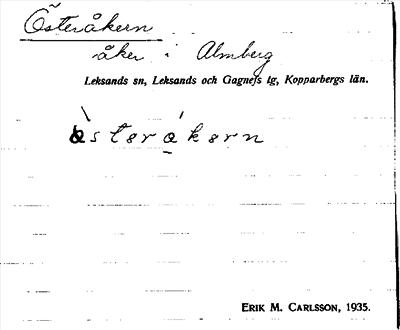 Österåkern
åker i Almberg
Leksands sn, Leksands och Gagnefs tg, Kopparbergs län.
österåkern
ERIK M. CARLSSON, 1935.